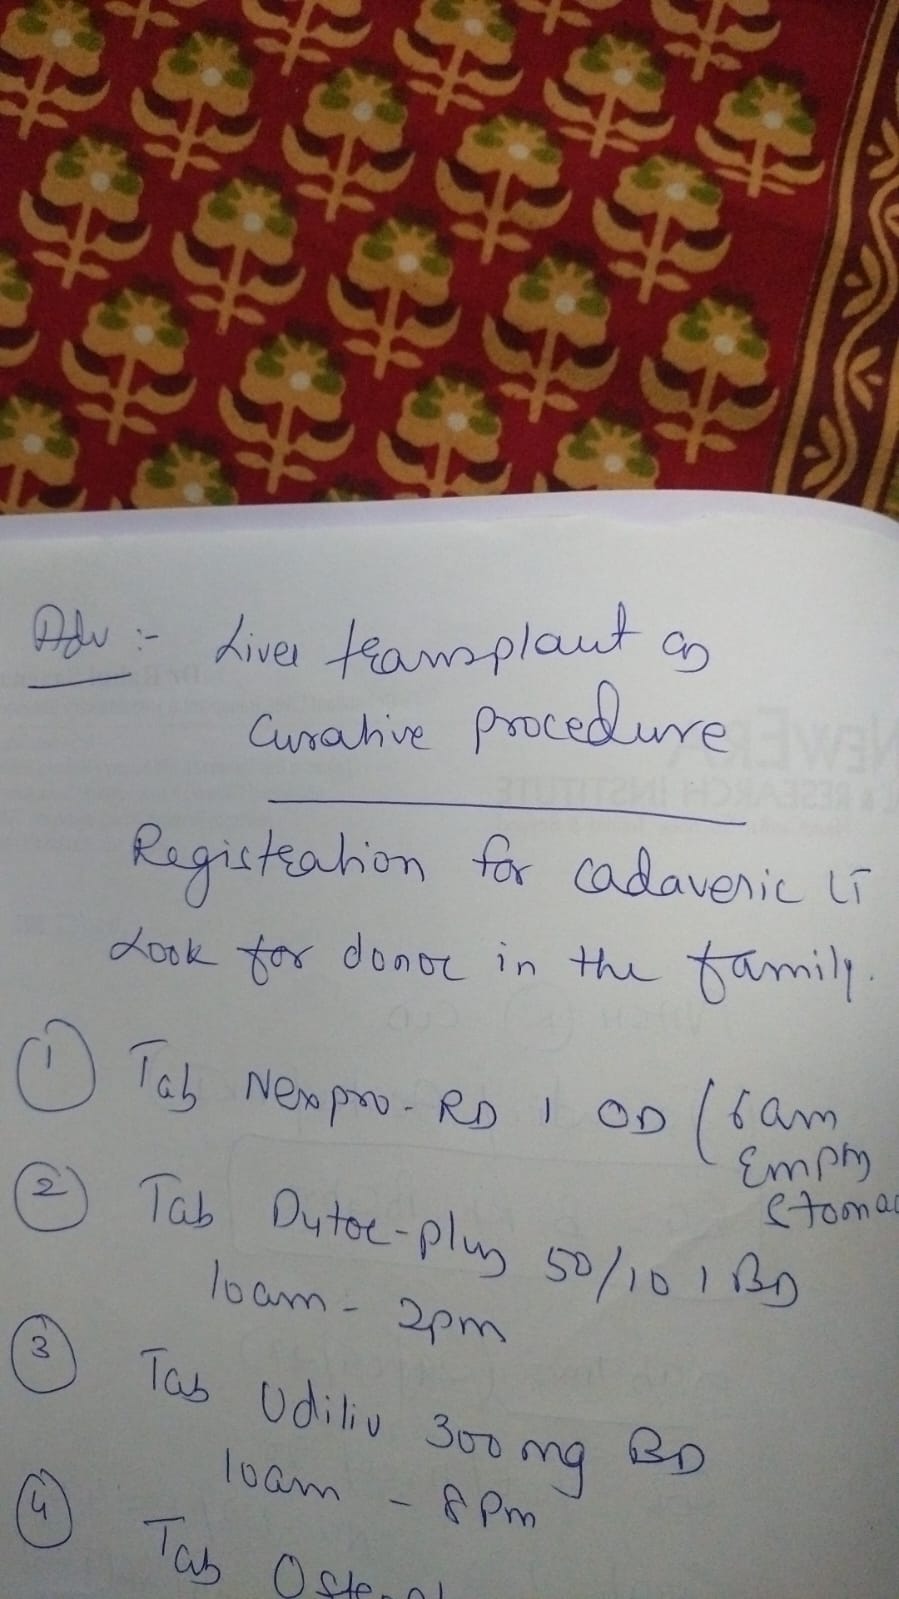 Adv :- Liver transplant as
Curative procedure
Registration for cadaveric LT
Look for donor in the family.
① Tab Nexpro-RD 1 OD (6am
Empty
Stomac
② Tab Dytor-plus 50/10 1 BD
10am - 2pm
③ Tab Udiliv 300 mg BD
10am - 8Pm
④ Tab
NEWERA
& RESEARCH INSTITUTE